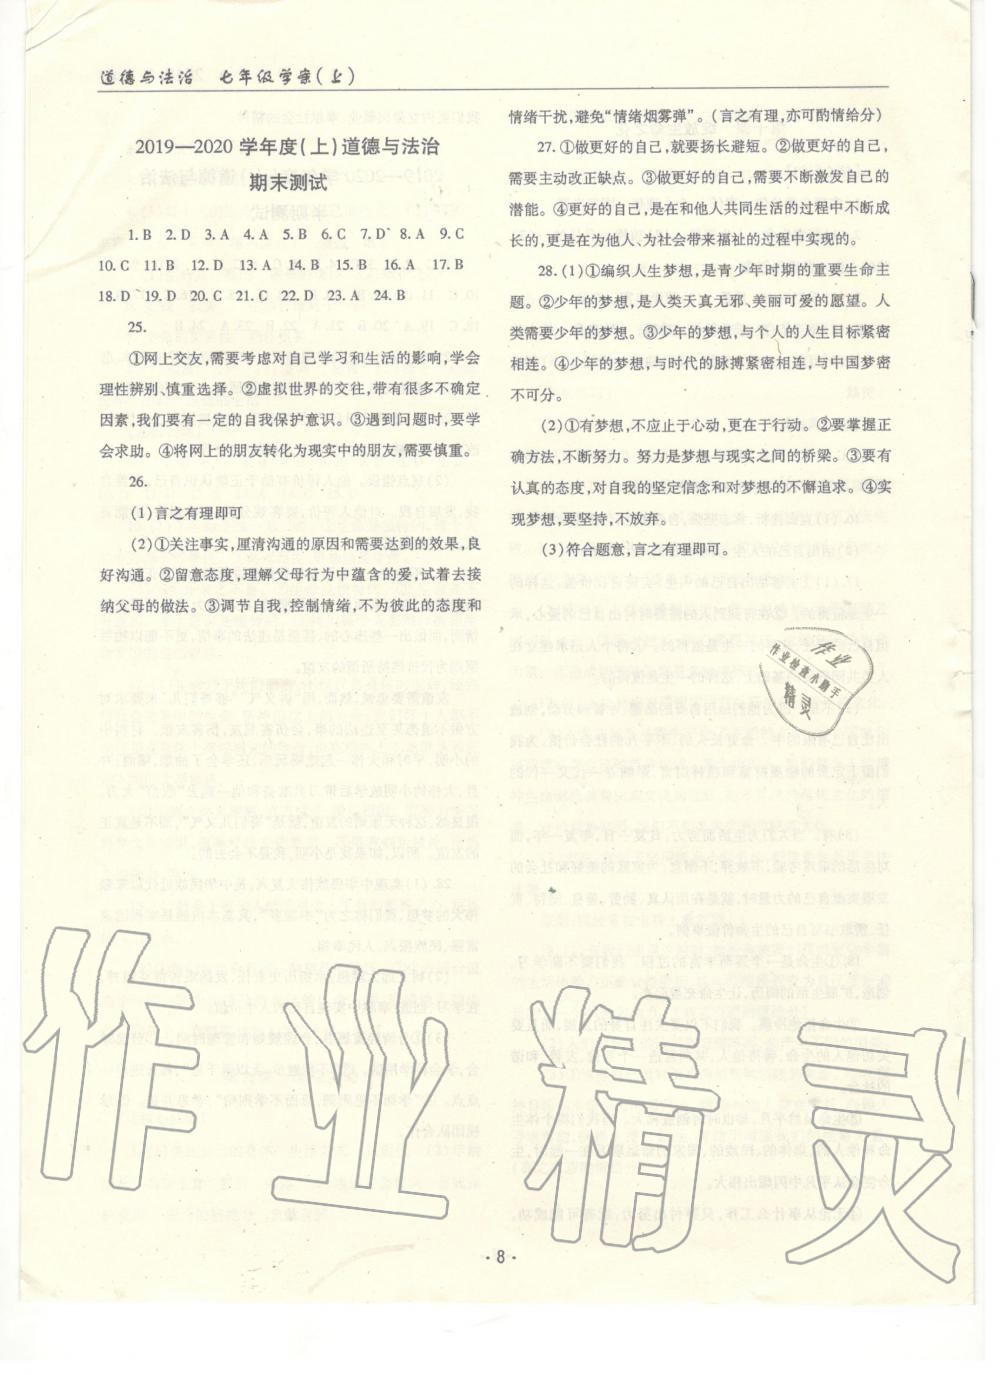 道德与法治 七年级学案(上)
2019—2020 学年度(上)道德与法治
期末测试
1. B 2. D 3. A 4. A 5. B 6. C 7. D 8. A 9. C
10. C 11. B 12. D 13. A 14. B 15. B 16. A 17. B
18. D 19. D 20. C 21. C 22. D 23. A 24. B
25.
①网上交友,需要考虑对自己学习和生活的影响,学会
理性辨别、慎重选择。②虚拟世界的交往,带有很多不确定
因素,我们要有一定的自我保护意识。③遇到问题时,要学
会求助。④将网上的朋友转化为现实中的朋友,需要慎重。
26.
(1)言之有理即可
(2)①关注事实,厘清沟通的原因和需要达到的效果,良
好沟通。②留意态度,理解父母行为中蕴含的爱,试着去接
纳父母的做法。③调节自我,控制情绪,不为彼此的态度和
情绪干扰,避免“情绪烟雾弹”。(言之有理,亦可酌情给分)
27. ①做更好的自己,就要扬长避短。②做更好的自己,
需要主动改正缺点。③做更好的自己,需要不断激发自己的
潜能。④更好的自己,是在和他人共同生活的过程中不断成
长的,更是在为他人、为社会带来福祉的过程中实现的。
28. (1)①编织人生梦想,是青少年时期的重要生命主
题。②少年的梦想,是人类天真无邪、美丽可爱的愿望。人
类需要少年的梦想。③少年的梦想,与个人的人生目标紧密
相连。④少年的梦想,与时代的脉搏紧密相连,与中国梦密
不可分。
(2)①有梦想,不应止于心动,更在于行动。②要掌握正
确方法,不断努力。努力是梦想与现实之间的桥梁。③要有
认真的态度,对自我的坚定信念和对梦想的不懈追求。④实
现梦想,要坚持,不放弃。
(3)符合题意,言之有理即可。
作业
作业检查小助手
精灵
作业精灵
· 8 ·